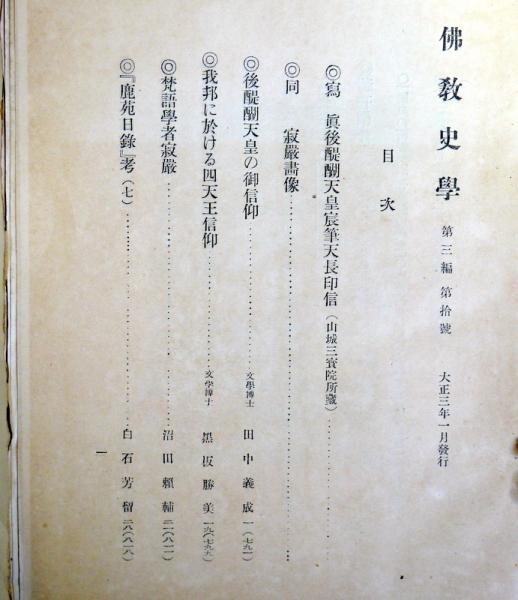 佛教史學 第三編 第拾號 大正三年一月發行
目次
◎寫眞後醍醐天皇宸筆天長印信(山城三寶院所藏)
◎同 寂嚴畫像
◎後醍醐天皇の御信仰 文學博士 田中義成 一(七九一)
◎我邦に於ける四天王信仰 文學博士 黑板勝美 一九(七九九)
◎梵語學者寂嚴 沼田賴輔 二一(八一一)
◎『鹿苑日錄』考(七) 白石芳留 二八(八一八)
一